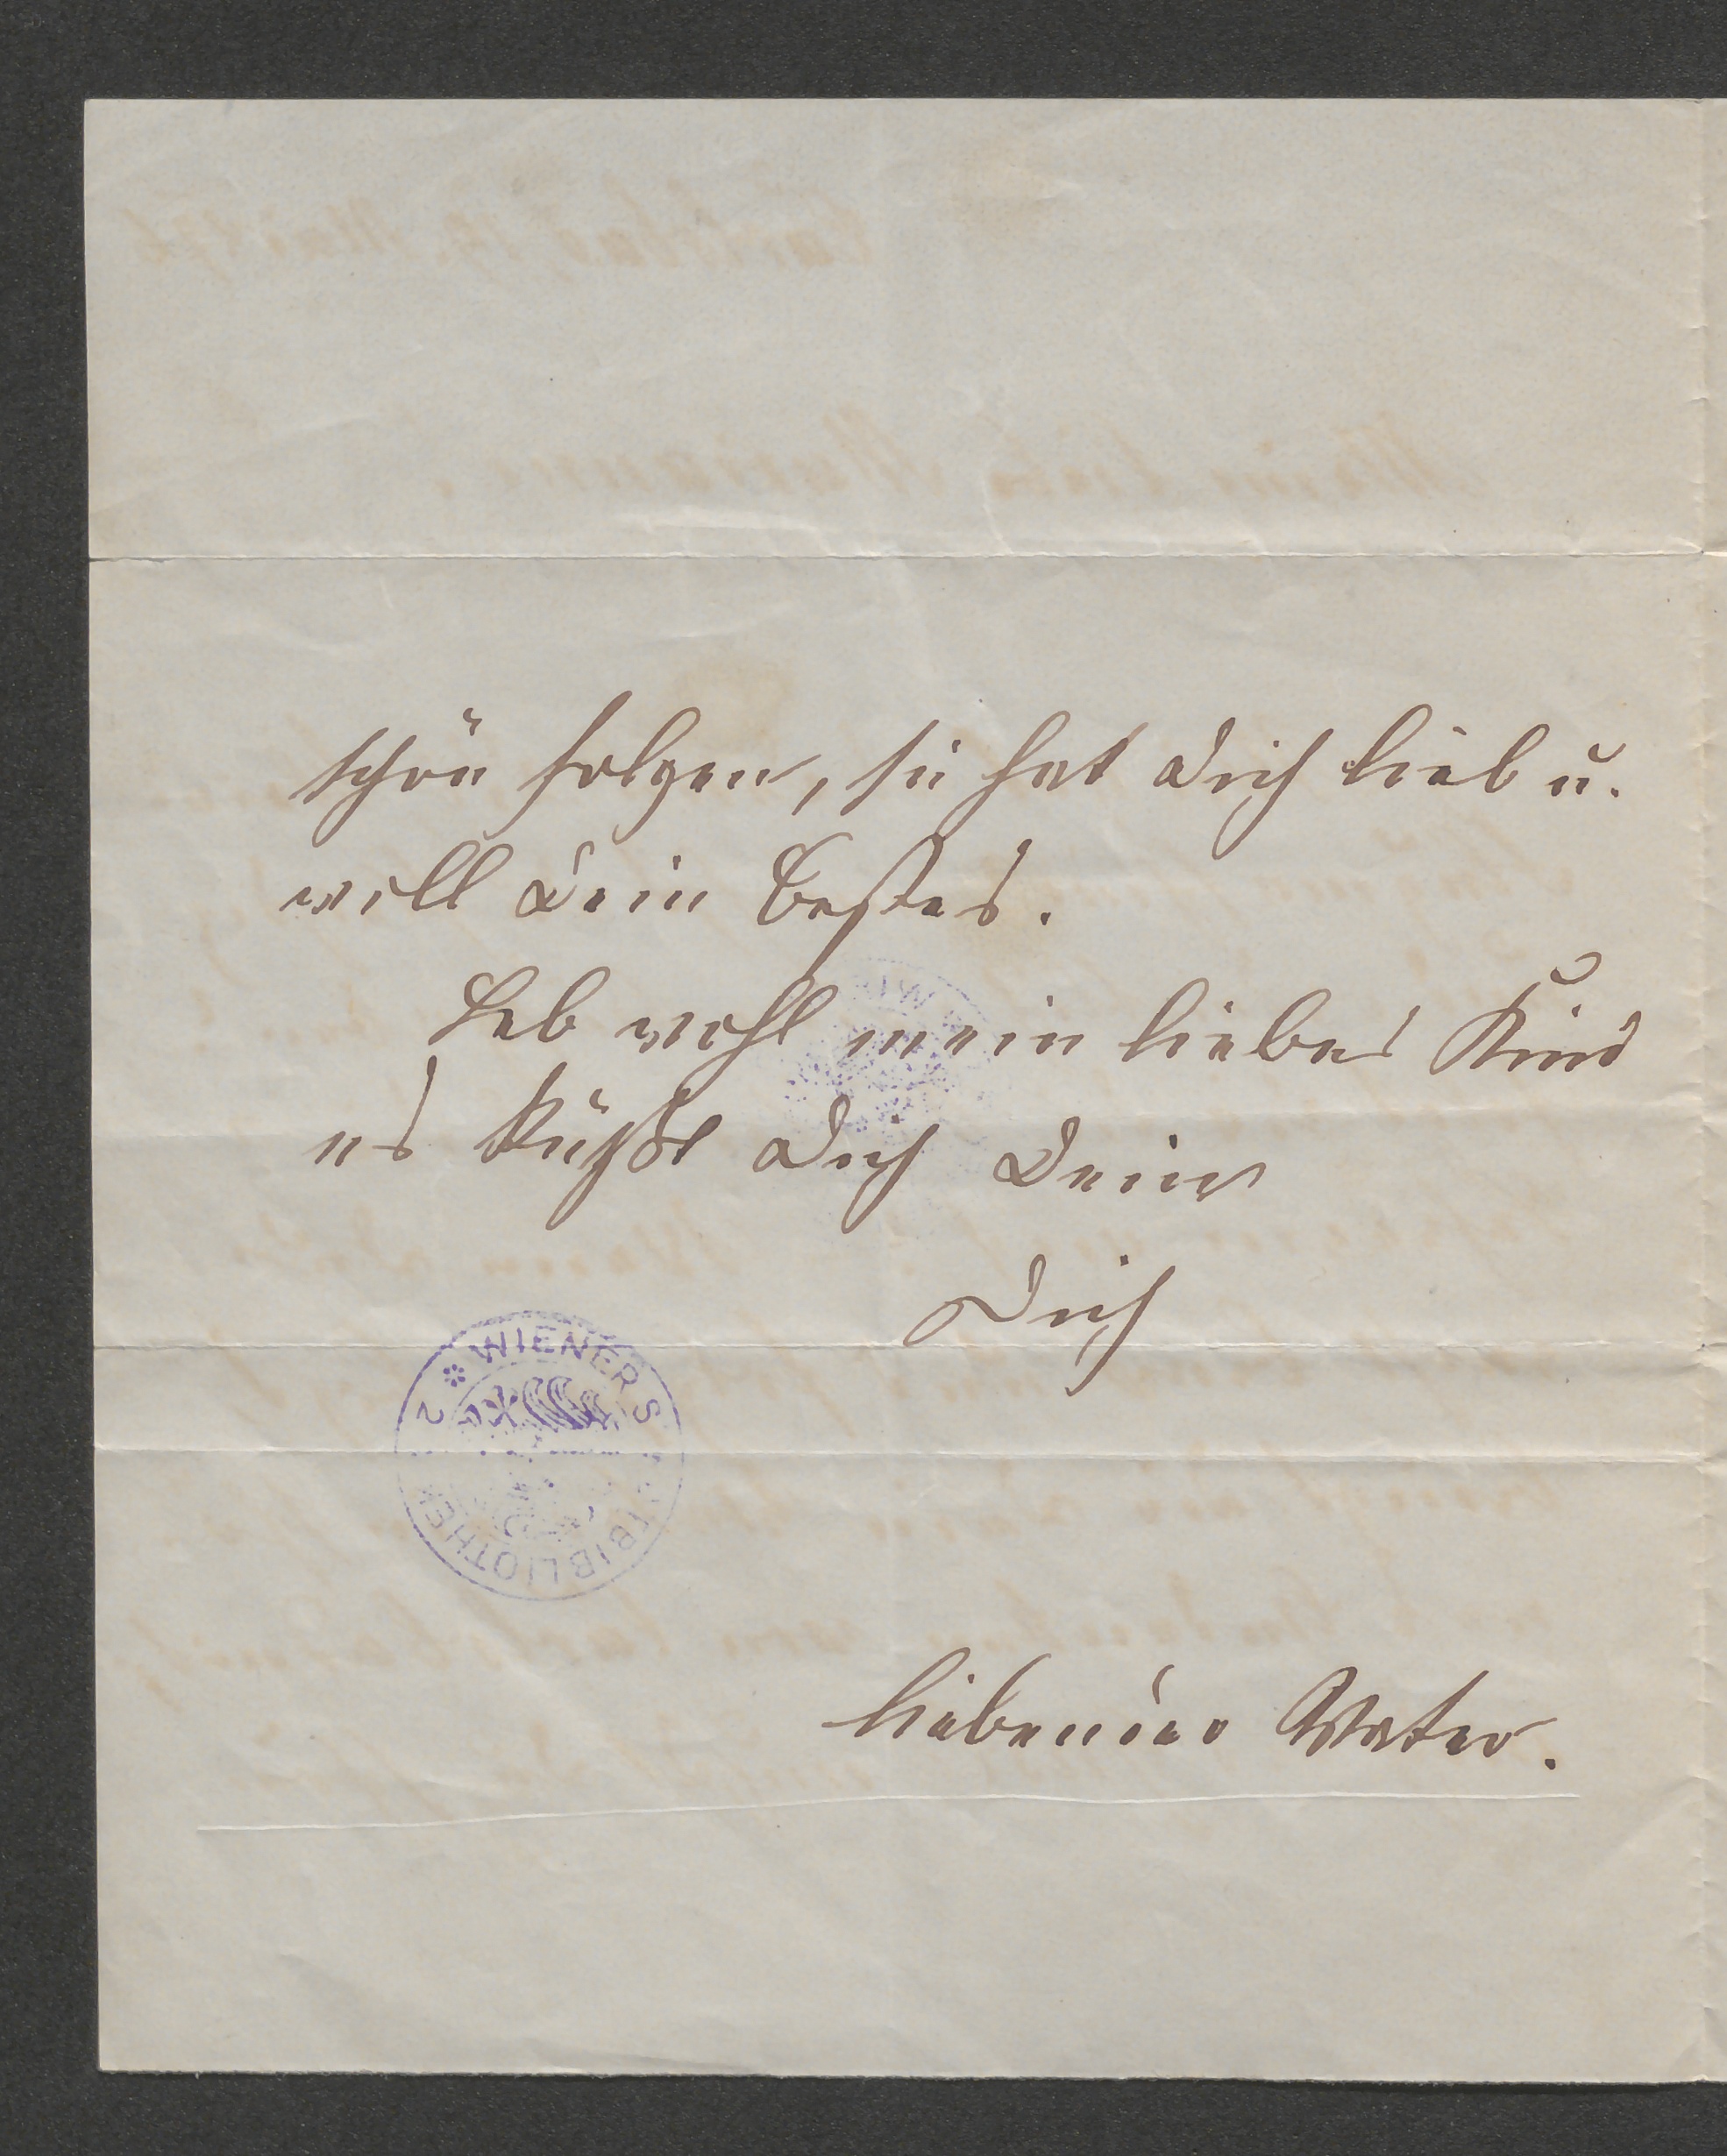 schön folgen, sie hat Dich lieb u.
will Dein Bestes.
Leb wohl mein liebes Kind
es küßt Dich Dein
Dich
WIENER S TBIBLIOTHEK
liebender Vater.